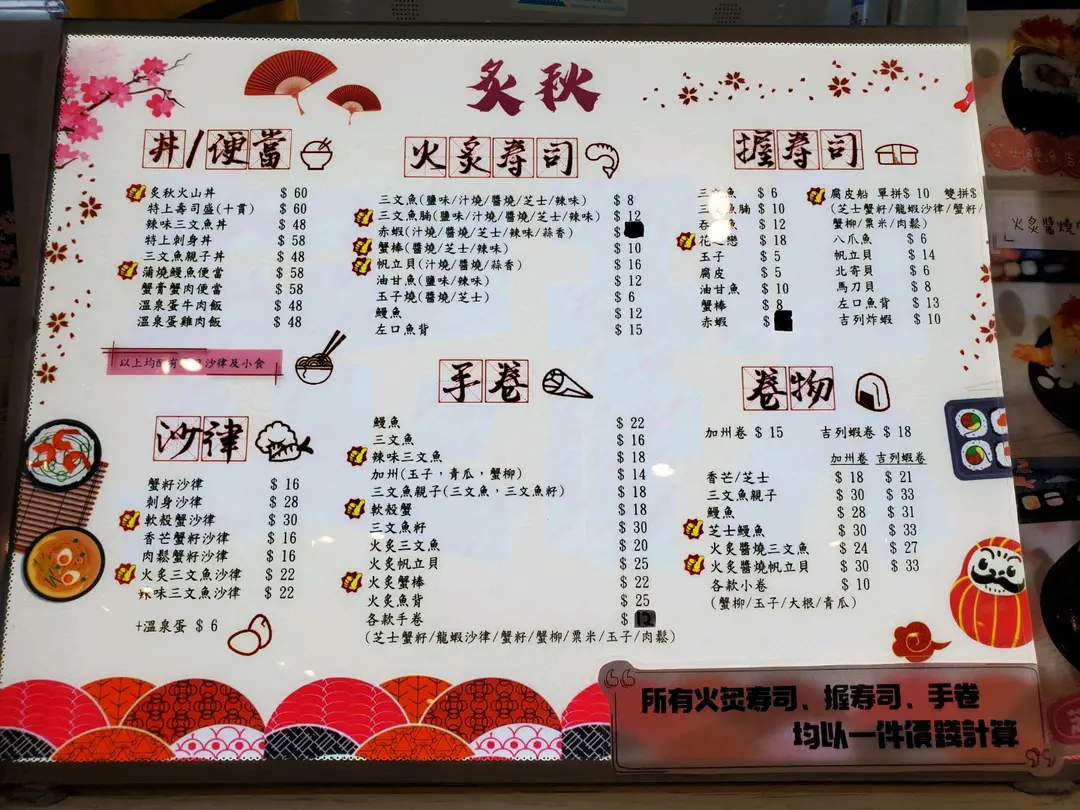 炙秋
丼/便當
炙秋火山丼 $ 60
特上壽司盛(十貫) $ 60
辣味三文魚丼 $ 48
特上刺身丼 $ 58
三文魚親子丼 $ 48
蒲燒鰻魚便當 $ 58
蟹膏蟹肉便當 $ 58
溫泉蛋牛肉飯 $ 48
溫泉蛋雞肉飯 $ 48
以上均配有 沙律及小食
沙律
蟹籽沙律 $ 16
刺身沙律 $ 28
軟殼蟹沙律 $ 30
香芒蟹籽沙律 $ 16
肉鬆蟹籽沙律 $ 16
火炙三文魚沙律 $ 22
辣味三文魚沙律 $ 22
+溫泉蛋 $ 6
火炙寿司
三文魚(鹽味/汁燒/醬燒/芝士/辣味) $ 8
三文魚腩(鹽味/汁燒/醬燒/芝士/辣味) $ 12
赤蝦(汁燒/醬燒/辣味/蒜香) $
蟹棒(醬燒/芝士/辣味) $ 10
帆立貝(汁燒/醬燒/蒜香) $ 16
油甘魚(鹽味/辣味) $ 12
玉子燒(醬燒/芝士) $ 6
鰻魚 $ 12
左口魚背 $ 15
手卷
鰻魚 $ 22
三文魚 $ 16
辣味三文魚 $ 18
加州(玉子，青瓜，蟹柳) $ 14
三文魚親子(三文魚，三文魚籽) $ 18
軟殼蟹 $ 18
三文魚籽 $ 30
火炙三文魚 $ 20
火炙帆立貝 $ 25
火炙蟹棒 $ 22
火炙魚背 $ 25
各款手卷 $ 12
(芝士蟹籽/龍蝦沙律/蟹籽/蟹柳/粟米/玉子/肉鬆)
握寿司
三文魚 $ 6
三文魚腩 $ 10
吞 魚 $ 12
花 戀 $ 18
玉子 $ 5
腐皮 $ 5
油甘魚 $ 10
蟹棒 $ 8
赤蝦 $
腐皮船 單拼$ 10 雙拼$
(芝士蟹籽/龍蝦沙律/蟹籽/
蟹柳/粟米/肉鬆)
八爪魚 $ 6
帆立貝 $ 14
北寄貝 $ 6
馬刀貝 $ 8
左口魚背 $ 13
吉列炸蝦 $ 10
卷物
加州卷 $ 15 吉列蝦卷 $ 18
加州卷 吉列蝦卷
香芒/芝士 $ 18 $ 21
三文魚親子 $ 30 $ 33
鰻魚 $ 28 $ 31
芝士鰻魚 $ 30 $ 33
火炙醬燒三文魚 $ 24 $ 27
火炙醬燒帆立貝 $ 30 $ 33
各款小卷 $ 10
(蟹柳/玉子/大根/青瓜)
所有火炙寿司、握寿司、手卷
均以一件價錢計算
芝士鰻魚吉
火炙醬燒